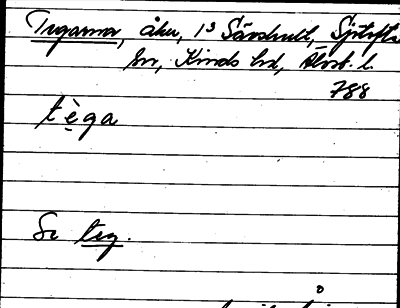 Tegarna, åker, 1³ Särshult, Sjötofta
sn, Kinds hd, Älvsb. l.
788
tèga
Se teg.